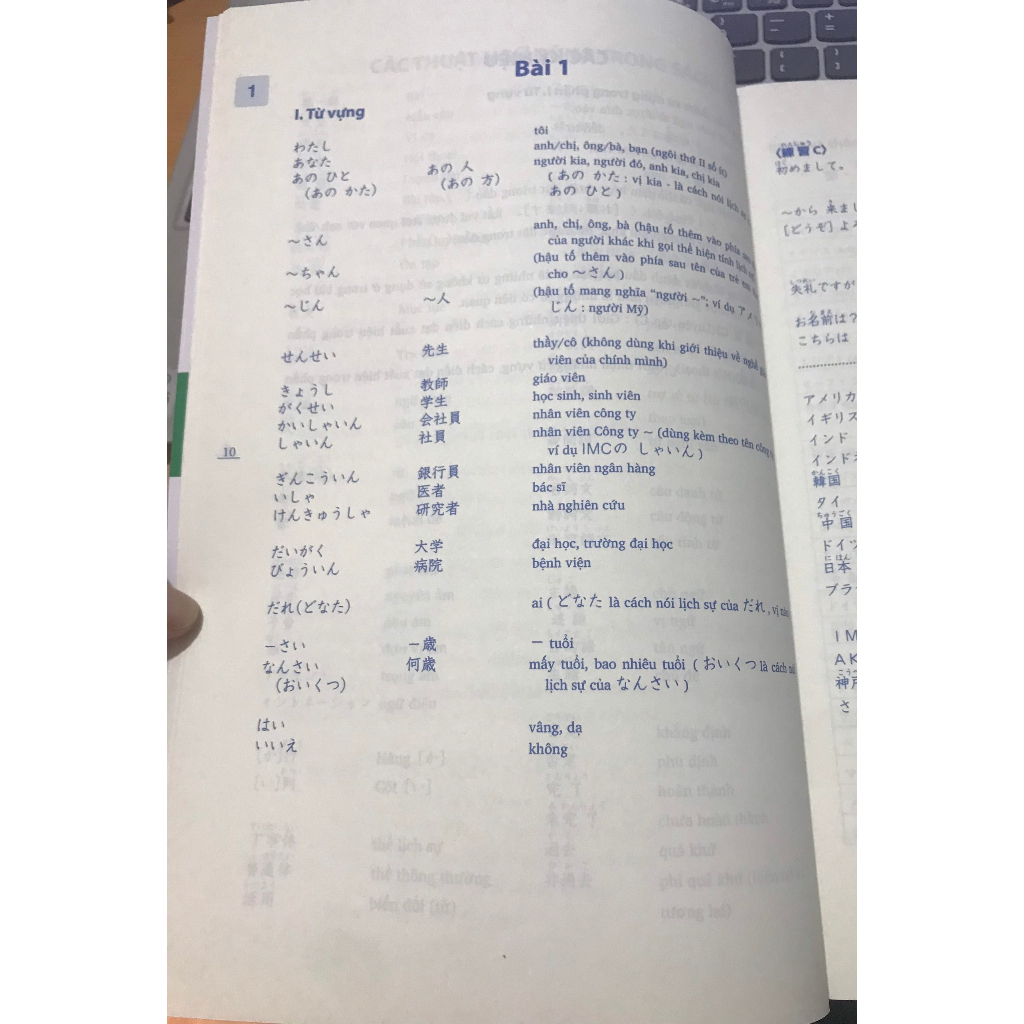 Bài 1
1
I. Từ vựng
わたし tôi
あなた anh/chị, ông/bà, bạn (ngôi thứ II số ít)
あの ひと あの 人 người kia, người đó, anh kia, chị kia
(あの かた) (あの 方) (あの かた : vị kia - là cách nói lịch sự
あの ひと)
~さん anh, chị, ông, bà (hậu tố thêm vào phía
của người khác khi gọi thể hiện tính lịch sự
~ちゃん (hậu tố thêm vào phía sau tên của trẻ em
cho ~さん)
~じん ~人 (hậu tố mang nghĩa “người ~”; ví dụ アメ
じん : người Mỹ)
せんせい 先生 thầy/cô (không dùng khi giới thiệu về nghề
viên của chính mình)
きょうし 教師 giáo viên
がくせい 学生 học sinh, sinh viên
かいしゃいん 会社員 nhân viên công ty
しゃいん 社員 nhân viên Công ty ~ (dùng kèm theo tên công
ví dụ IMCの しゃいん)
10
ぎんこういん 銀行員 nhân viên ngân hàng
いしゃ 医者 bác sĩ
けんきゅうしゃ 研究者 nhà nghiên cứu
だいがく 大学 đại học, trường đại học
びょういん 病院 bệnh viện
だれ(どなた) ai (どなた là cách nói lịch sự của だれ, vị
－さい －歳 － tuổi
なんさい 何歳 mấy tuổi, bao nhiêu tuổi (おいくつ là cách
(おいくつ) lịch sự của なんさい)
はい vâng, dạ
いいえ không
〈練習C〉
初めまして。
~から 来まし
[どうぞ] よ
失礼ですが
お名前は?
こちらは
アメリカ
イギリス
インド
インド
韓国
タイ
中国
ドイツ
日本
ブラ
IM
AK
神戸
さ